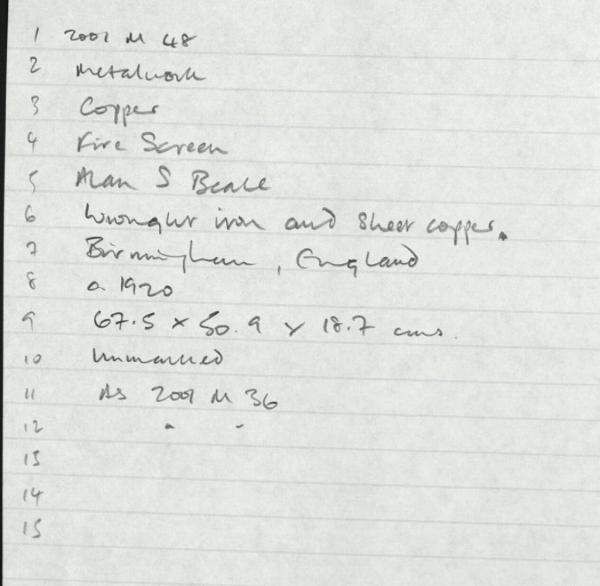 1 2001 M 48
2 Metalwork
3 Copper
4 Fire Screen
5 Alan S Beale
6 Wrought iron and sheet copper.
7 Birmingham, England
8 a 1920
9 67.5 x 50.9 x 18.7 cms.
10 Unmarked
11 As 2001 M 36
12 " "
13
14
15